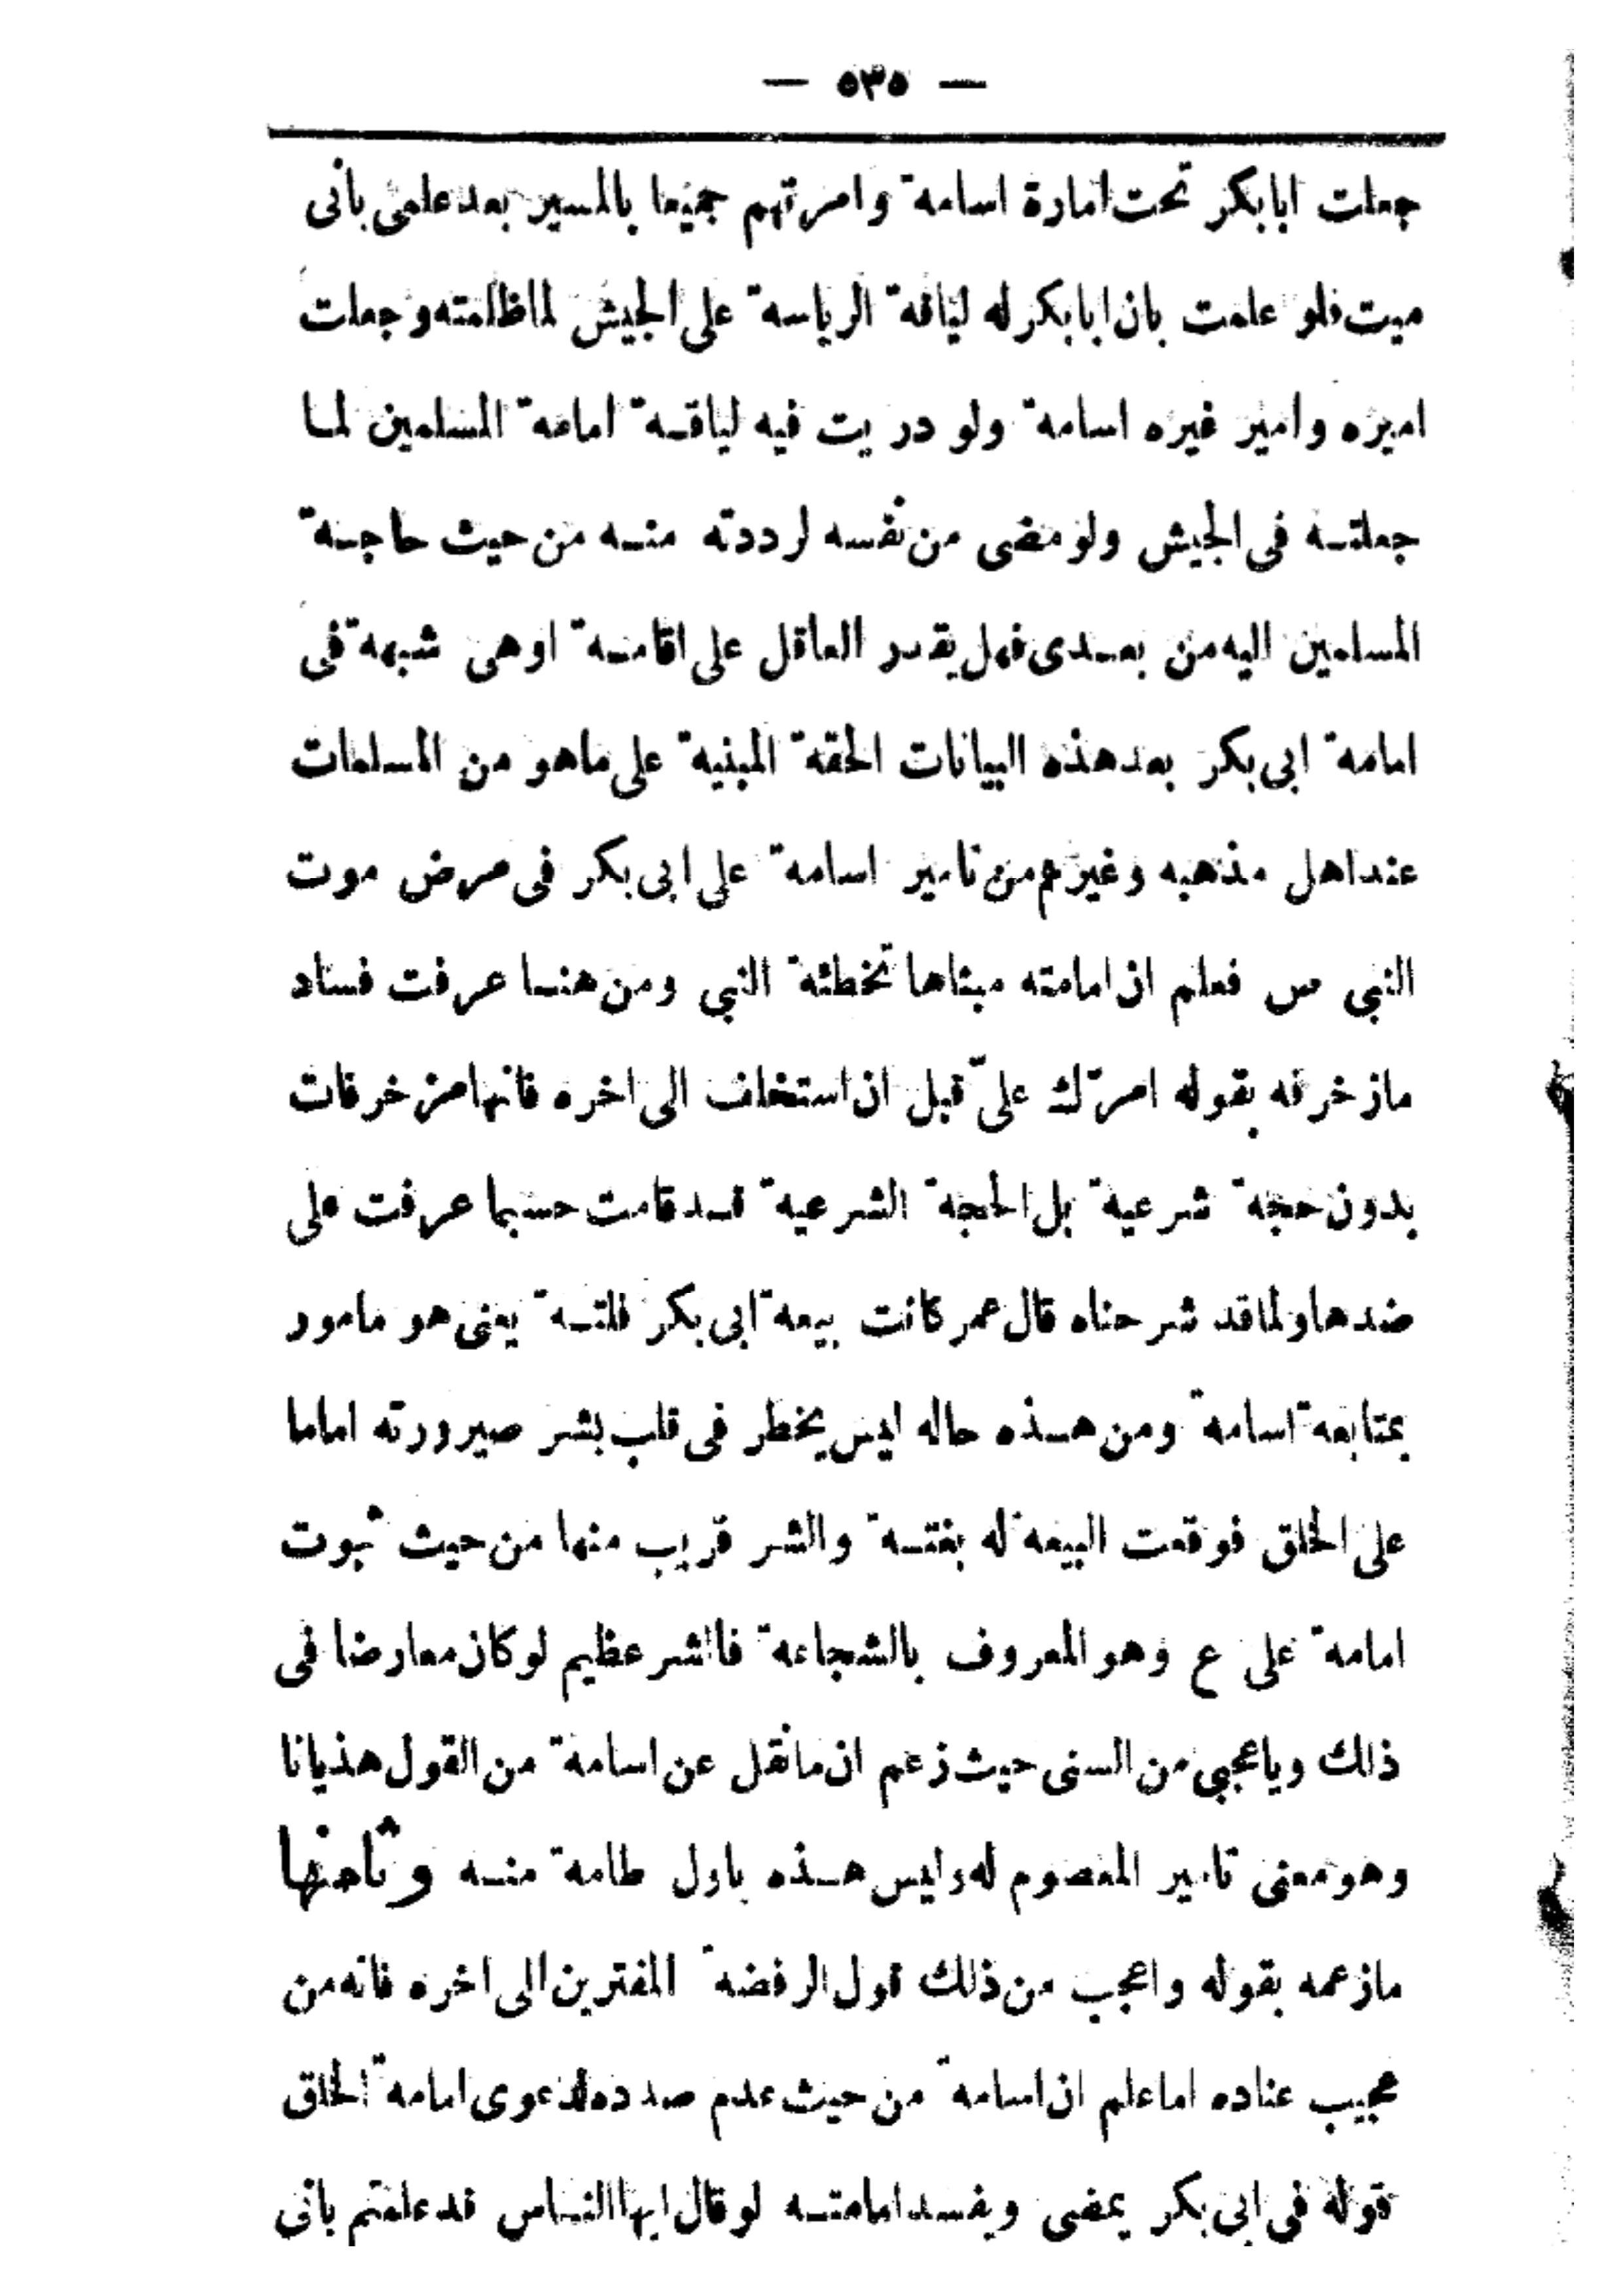 — ٥٣٥ —
جعلت ابابكر تحت امارة اسامة وامرتهم جميعا بالمسير بعد علمى بأنى
ميت فلو علمت بان ابابكر له لياقة الرياسة على الجيش لما ظلمته وجعلت
اميره وامير غيره اسامة ولو دريت فيه لياقة امامة المسلمين لما
جعلته فى الجيش ولو مضى من نفسه لرددته منه من حيث حاجة
المسلمين اليه من بعدى فهل يقدر العاقل على اقامة اوهى شبهة فى
امامة ابى بكر بعد هذه البيانات الحقة المبنية على ماهو من المسلمات
عند اهل مذهبه وغيرهم من تامير اسامة على ابى بكر فى مرض موت
النبى ص فعلم ان امامته مبناها تخطئة النبى ومن هنا عرفت فساد
مازخرفه بقوله امرّك علىّ قبل ان استخلف الى اخره فانها مزخرفات
بدون حجة شرعية بل الحجة الشرعية قد قامت حسبما عرفت على
ضدها ولما قد شرحناه قال عمر كانت بيعة ابى بكر فلتة يعنى هو مامور
بمتابعة اسامة ومن هذه حاله ليس يخطر فى قلب بشر صيرورته اماما
على الخلق فوقعت البيعة له بغتة والشر قريب منها من حيث ثبوت
امامة على ع وهو المعروف بالشجاعة فالشر عظيم لو كان معارضا فى
ذلك وياعجبى من السنى حيث زعم ان مانقل عن اسامة من القول هذيانا
وهو معنى تامير المعصوم له وليس هذه باول طامة منه وثامنها
مازعمه بقوله واعجب من ذلك قول الرفضة المفترين الى اخره فانه من
عجيب عناده اما علم ان اسامة من حيث عدم صدده لدعوى امامة الخلق
قوله فى ابى بكر يمضى ويفسد امامته لو قال ايها الناس قد علمتم بانى